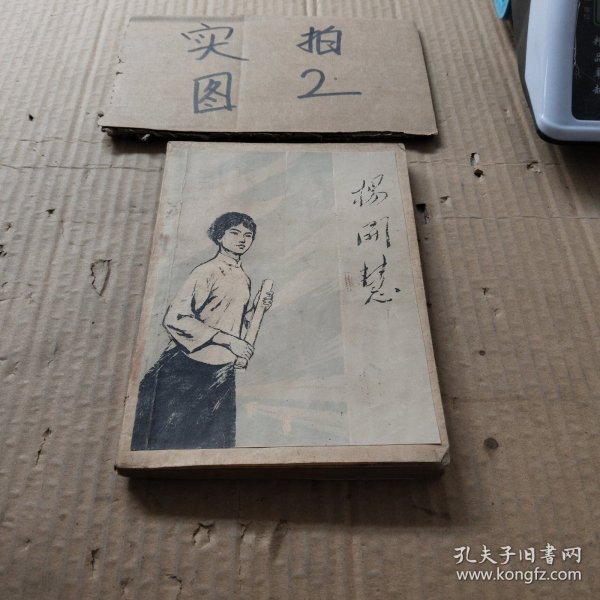 实拍
图2
杨開慧
孔夫子旧書网
www.kongfz.com